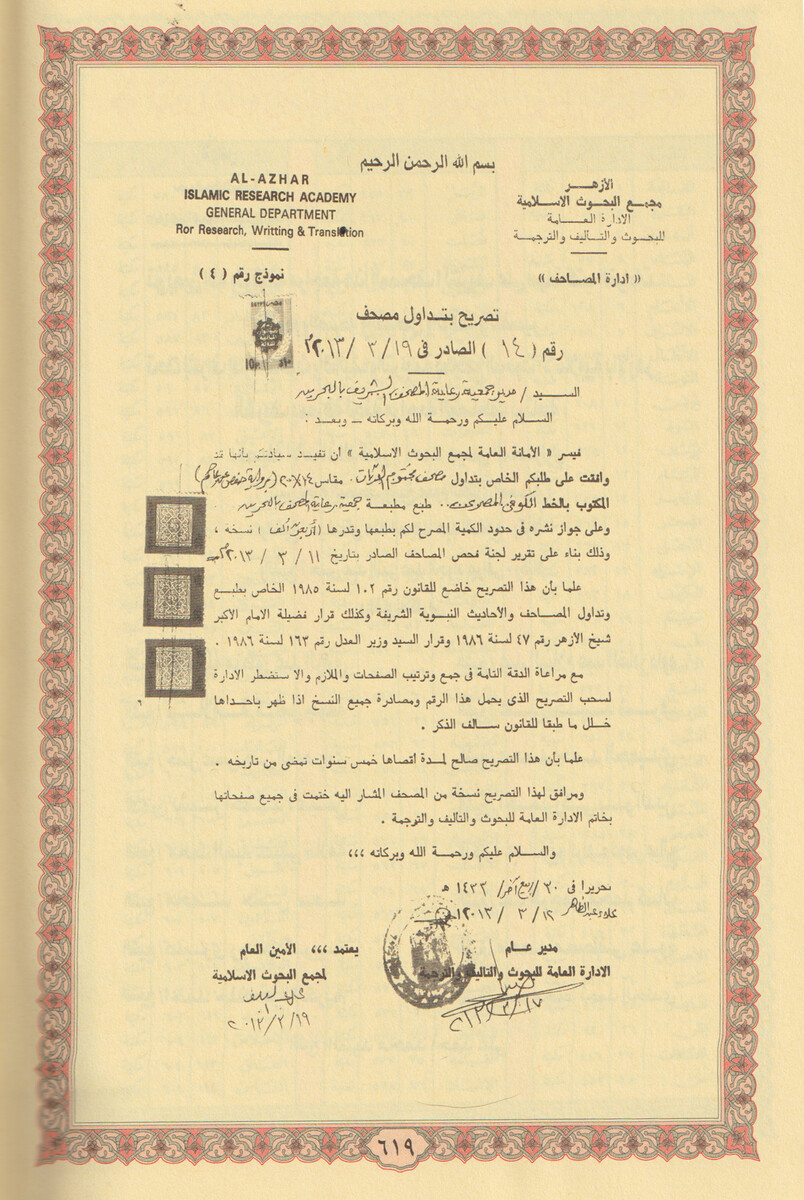 بسم الله الرحمن الرحيم
AL-AZHAR
ISLAMIC RESEARCH ACADEMY
GENERAL DEPARTMENT
Ror Research, Writting & Translation
الأزهـــر
مجمع البحوث الاسلامية
الادارة العـــامة
للبحوث والتأليف والترجمة
« ادارة المصاحف »
نموذج رقم ( ٤ )
تصريح بتداول مصحف
رقم ( ١٤ ) الصادر فى ١٩ / ٣ / ٢٠١٣م
الســيد / مدير جمعية رعاية المصحف الشريف بالبحرين
السلام عليكم ورحمة الله وبركاته ــ وبعد :
فيسر « الأمانة العامة لمجمع البحوث الاسلامية » ان تفيد سيادتكم بأنها قد
وافقت على طلبكم الخاص بتداول مصحف مقاس ١٤×٢٠ ( برواية حفص عن عاصم )
المكتوب بالخط الكوفى طبع مطبعة جمعية رعاية المصحف بالبحرين
وعلى جواز نشره فى حدود الكمية المصرح لكم بطبعها وقدرها ( ألف ) نسخة ،
وذلك بناء على تقرير لجنة فحص المصاحف الصادر بتاريخ ١١ / ٣ / ٢٠١٣م
علما بأن هذا التصريح خاضع للقانون رقم ١٠٢ لسنة ١٩٨٥ الخاص بطبع
وتداول المصاحف والأحاديث النبوية الشريفة وكذلك قرار فضيلة الامام الأكبر
شيخ الأزهر رقم ٤٧ لسنة ١٩٨٦ وقرار السيد وزير العدل رقم ١٦٣ لسنة ١٩٨٦ .
مع مراعاة الدقة التامة فى جمع وترتيب الصفحات والملازم والا ستضطر الادارة
لسحب التصريح الذى يحمل هذا الرقم ومصادرة جميع النسخ اذا ظهر باحداها
خلل ما طبقا للقانون سالف الذكر .
علما بأن هذا التصريح صالح لمدة أقصاها خمس سنوات تمضى من تاريخه .
ومرافق لهذا التصريح نسخة من المصحف المشار اليه ختمت فى جميع صفحاتها
بخاتم الادارة العامة للبحوث والتأليف والترجمة .
والسلام عليكم ورحمة الله وبركاته ،،،
تحريرا فى / ربيع آخر / ١٤٣٤ هـ
/ ٣ / ٢٠١٣
مدير عــام
الادارة العامة للبحوث والتأليف والترجمة
٢٠١٣/٣/١٧
يعتمد ،،، الأمين العام
لمجمع البحوث الاسلامية
٢٠١٣/٣/١٩
٦١٩